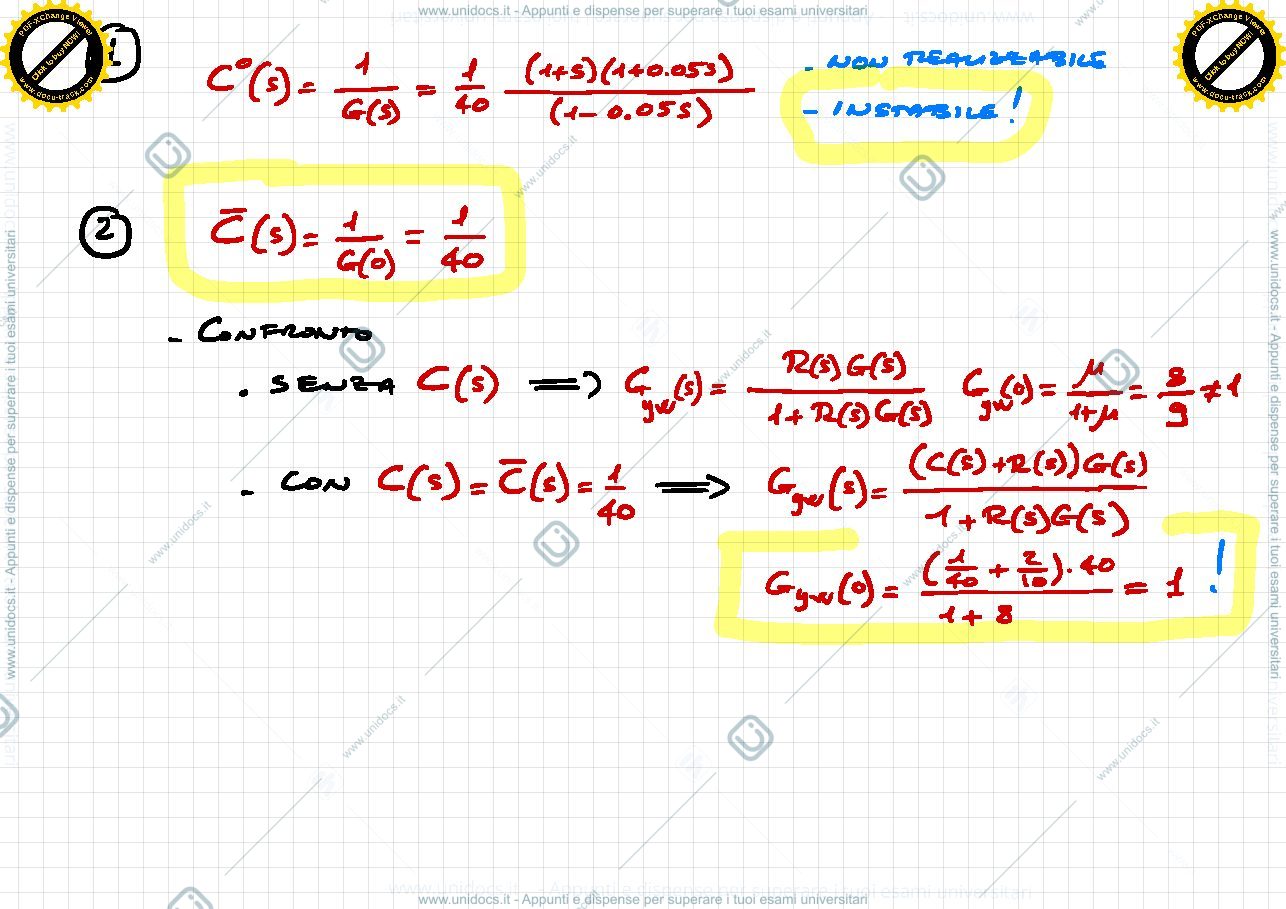 www.unidocs.it - Appunti e dispense per superare i tuoi esami universitari
PDF-XChange Viewer
Click to buy NOW!
www.docu-track.com
PDF-XChange Viewer
Click to buy NOW!
www.docu-track.com
1
C°(s) = 1/G(s) = 1/40 (1+s)(1+0.05s)/(1-0.05s)
- NON REALIZZABILE
- INSTABILE!
2
C̄(s) = 1/G(0) = 1/40
- CONFRONTO
. SENZA C(s) ⟹ Gyw(s) = R(s)G(s)/(1+R(s)G(s)) Gyw(0) = μ/(1+μ) = 8/9 ≠ 1
- CON C(s) = C̄(s) = 1/40 ⟹ Gyw(s) = (C(s)+R(s))G(s)/(1+R(s)G(s))
Gyw(0) = (1/40 + 2/10)·40/(1+8) = 1 !
www.unidocs.it - Appunti e dispense per superare i tuoi esami universitari
www.unidocs.it - Appunti e dispense per superare i tuoi esami universitari
www.unidocs.it
www.unidocs.it
www.unidocs.it
www.unidocs.it
www.unidocs.it
www.unidocs.it - Appunti e dispense per superare i tuoi esami universitari